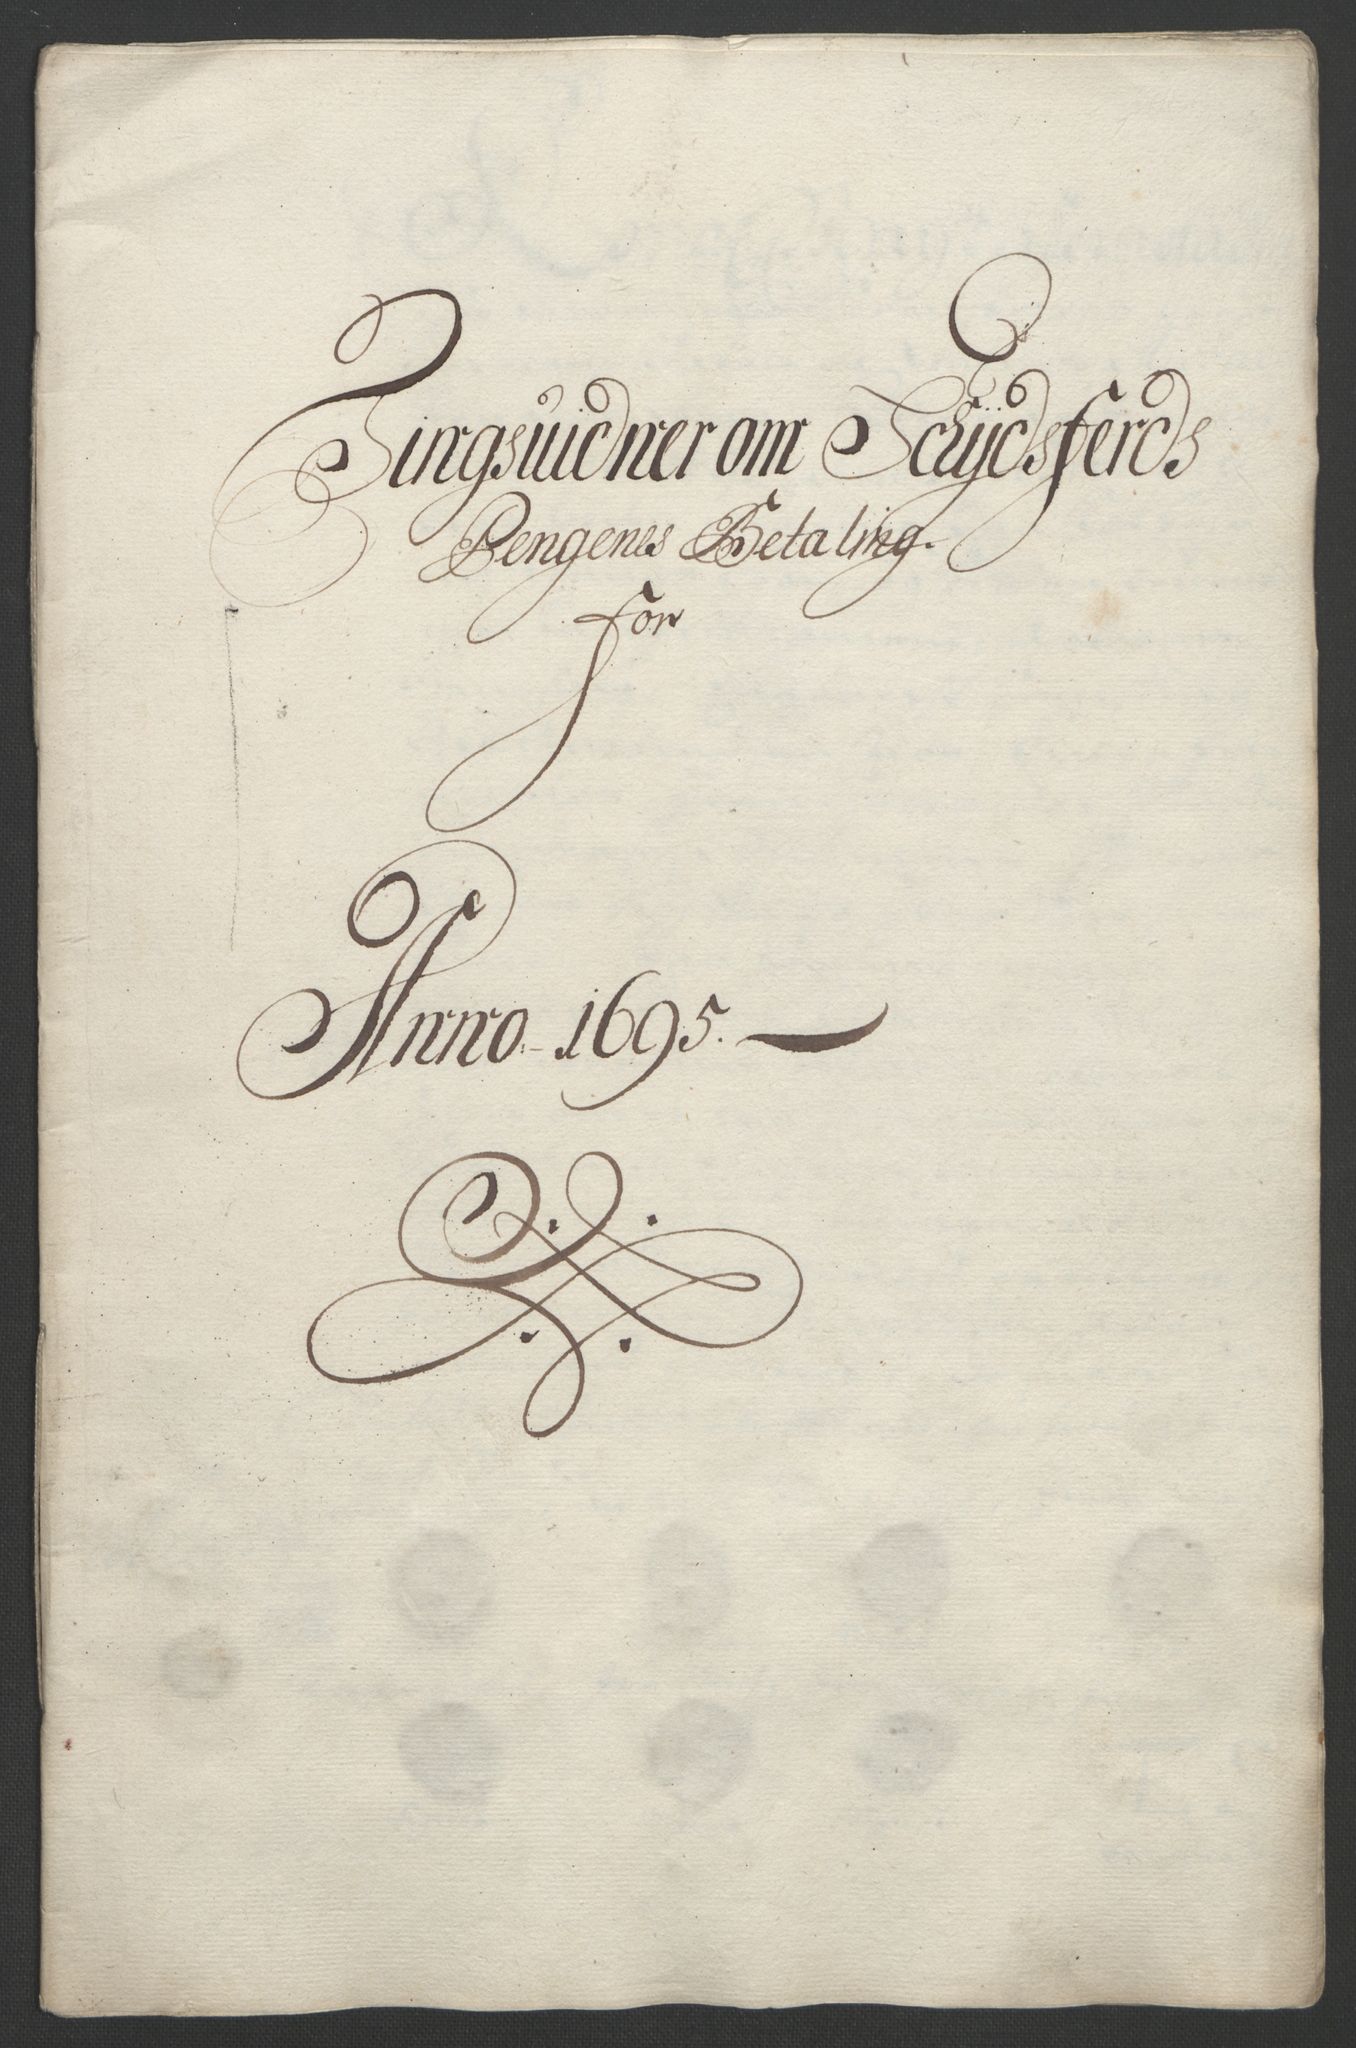 Tingsuidner om Schydsferds
Pengenes Betaling.
for
Anno 1695.